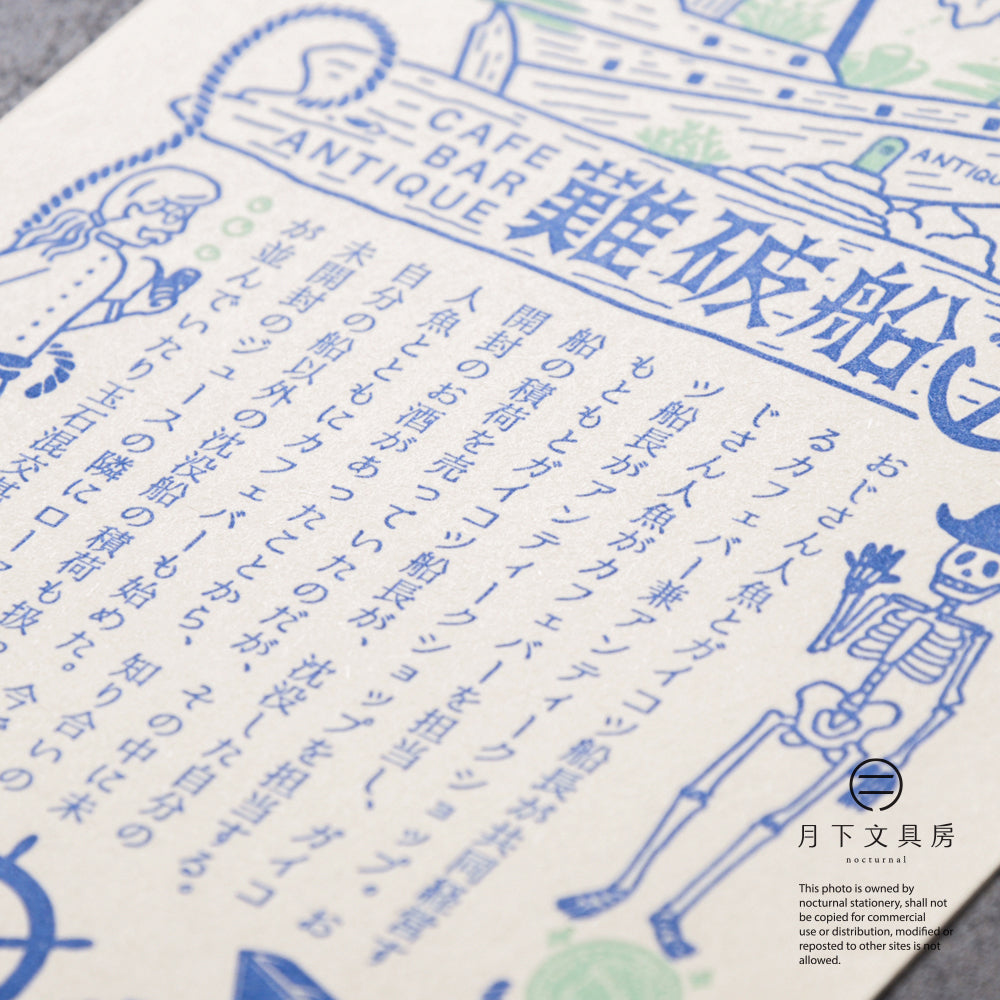 CAFE
BAR
ANTIQUE
難破船
ANTIQU
おじさん人魚とガイコツ船長が共同経営す
るカフェバー兼アンティークショップ。お
じさん人魚がカフェバーを担当し、ガイコ
ツ船長がアンティークショップを担当する。
もともとガイコツ船長が、沈没した自分の
船の積荷を売っていたのだが、その中に未
開封のお酒があったことから、知り合いの
人魚とともにカフェバーも始めた。今で
自分の船以外の沈没船の積荷も扱
未開封のジュースの隣にロー
が並んでいたり玉石混交
月下文具房
nocturnal
This photo is owned by
nocturnal stationery, shall not
be copied for commercial
use or distribution, modified or
reposted to other sites is not
allowed.